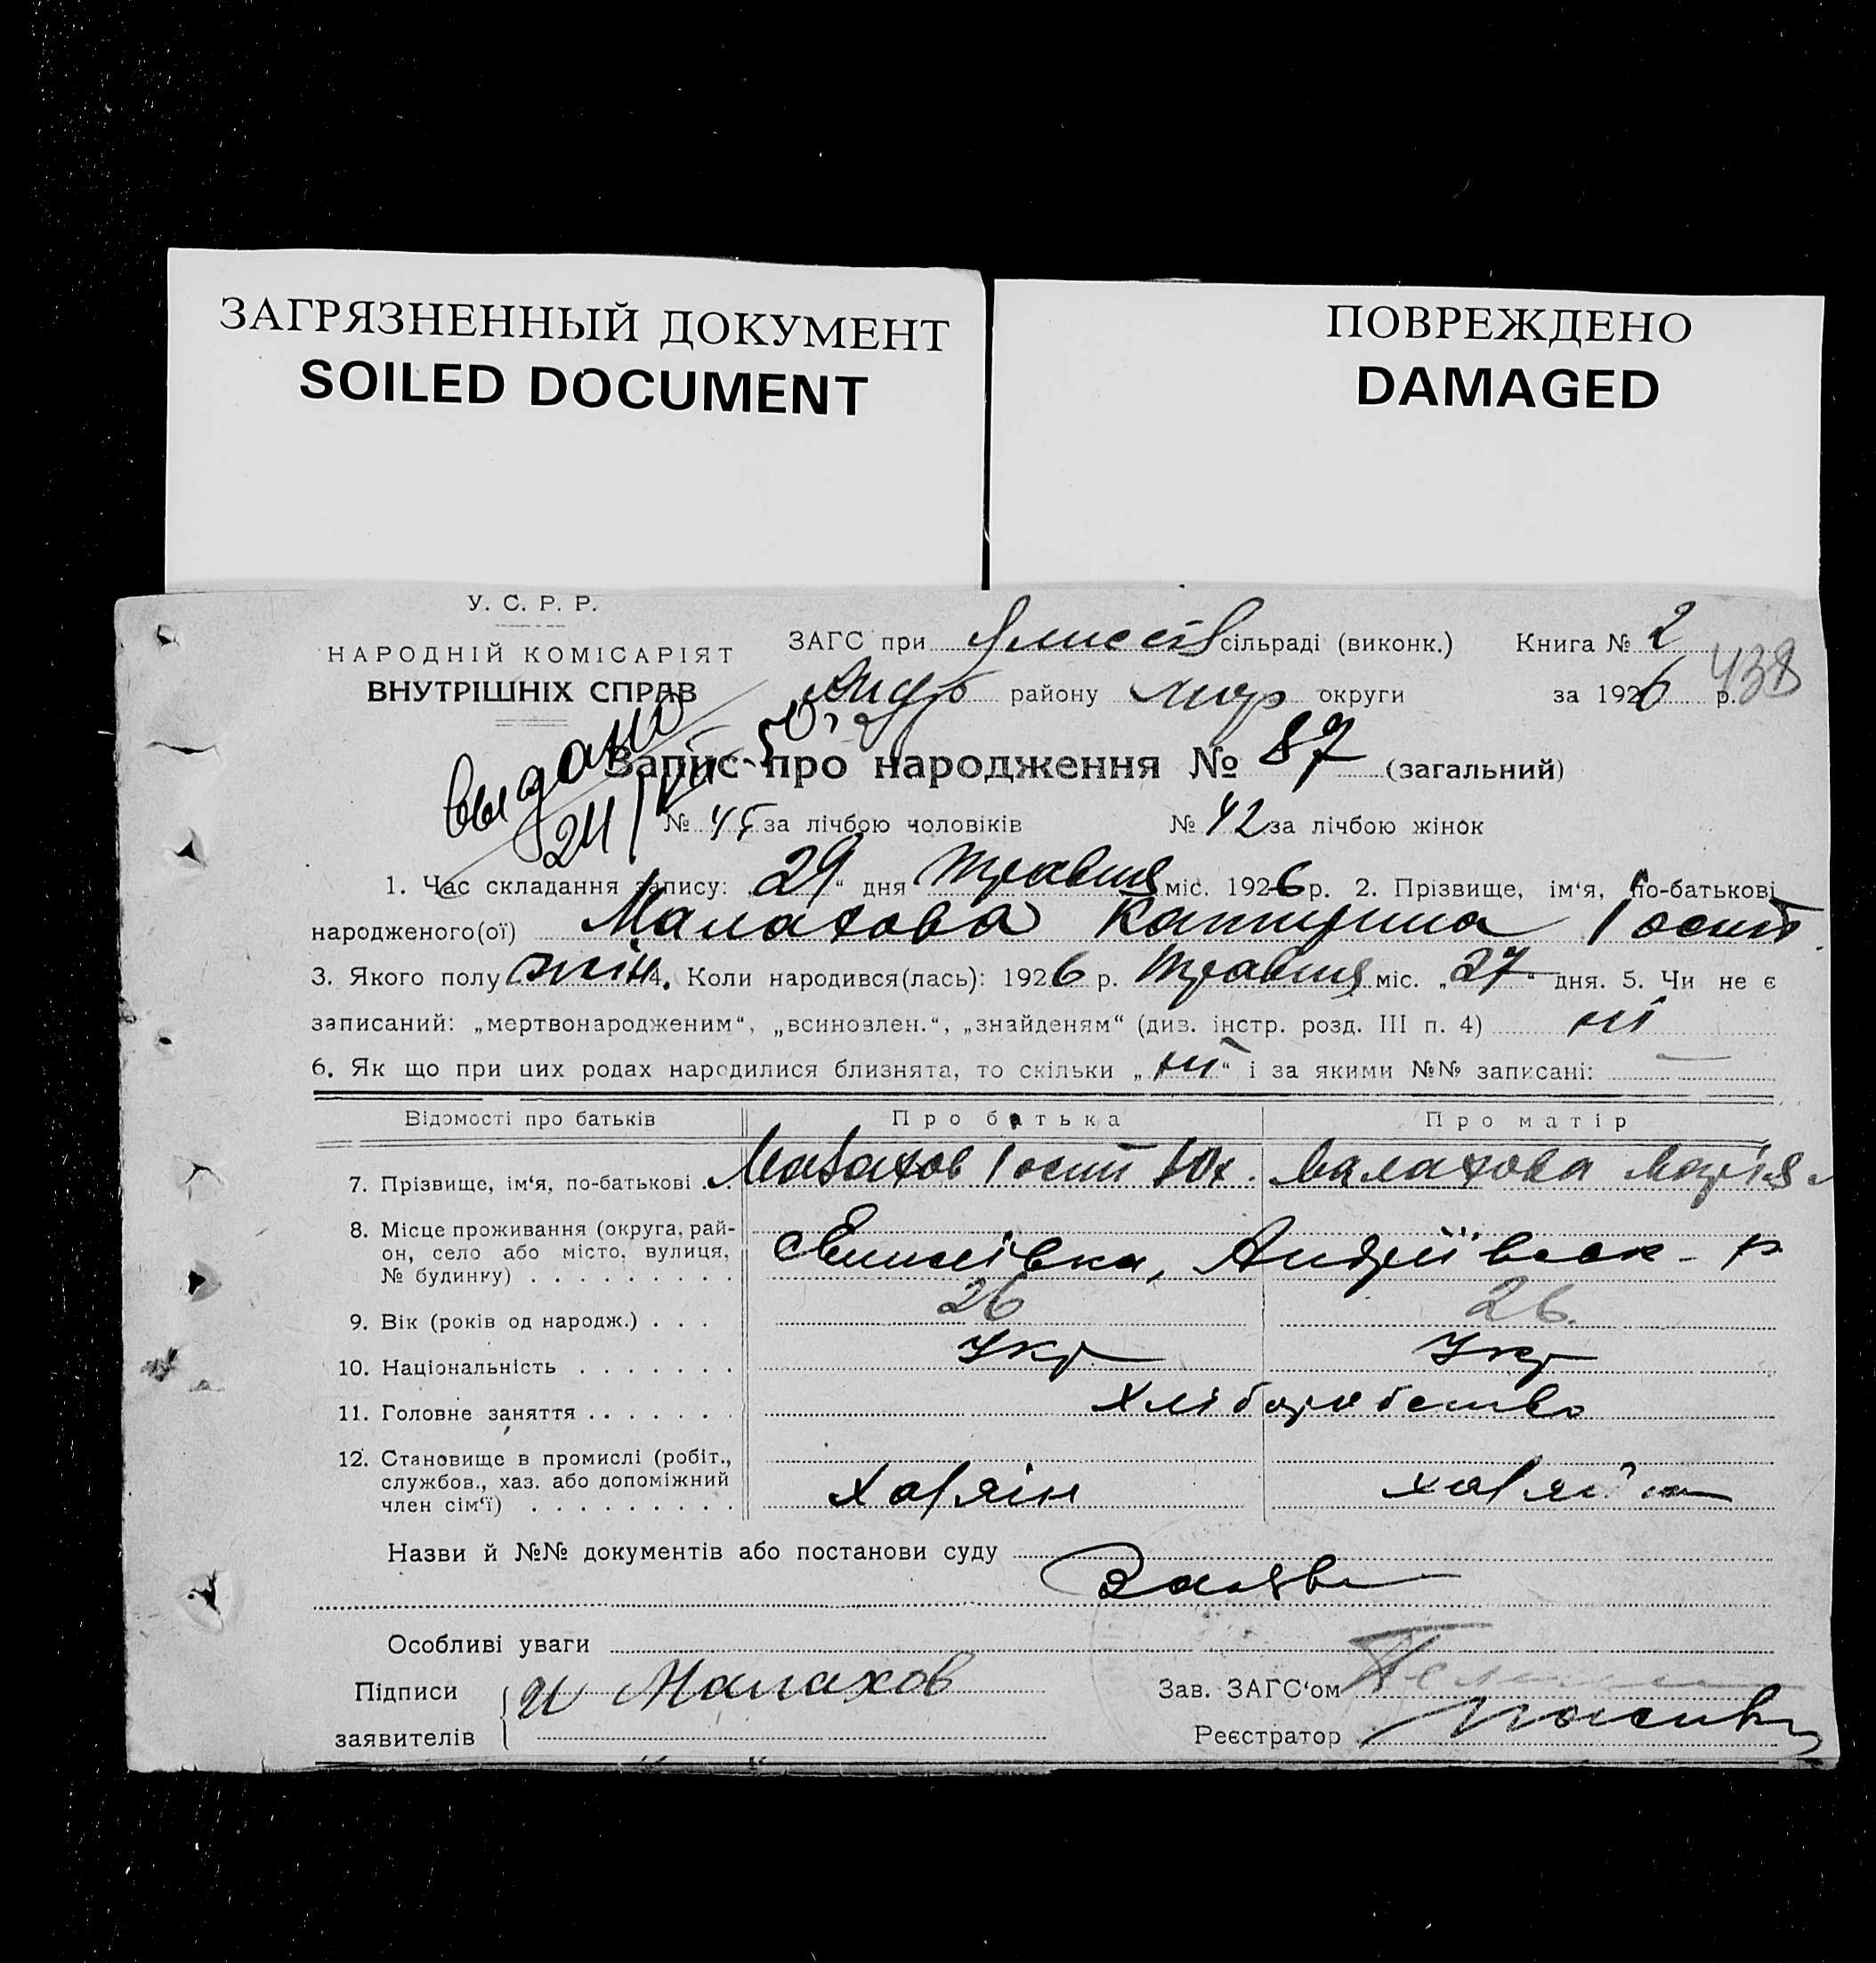 ЗАГРЯЗНЕННЫЙ ДОКУМЕНТ
SOILED DOCUMENT
ПОВРЕЖДЕНО
DAMAGED
У. С. Р. Р.
НАРОДНІЙ КОМІСАРІЯТ
ВНУТРІШНІХ СПРАВ
ЗАГС при сільраді (виконк.) Книга № 2
району округи за 1926 р. 438
выдано
Запис про народження № 87 (загальний)
№ 45 за лічбою чоловіків № 42 за лічбою жінок
1. Час складання запису: „29“ дня Травня міс. 1926 р. 2. Прізвище, ім‘я, по-батькові
народженого(ої) Малахова Катерина Іосип.
3. Якого полу жін. 4. Коли народився(лась): 1926 р. Травня міс. „27“ дня. 5. Чи не є
записаний: „мертвонародженим“, „всиновлен.“, „знайденям“ (див. інстр. розд. III п. 4) ні
6. Як що при цих родах народилися близнята, то скільки „ні“ і за якими №№ записані: —
Відомості про батьків Про батька Про матір
7. Прізвище, ім‘я, по-батькові . . Малахов Іосип Юх. Малахова Марія
8. Місце проживання (округа, рай-
он, село або місто, вулиця,
№ будинку) . . . . . . . . . Андріївськ - р
9. Вік (років од народж.) . . . 26 26.
10. Національність . . . . . . . Укр Укр
11. Головне заняття . . . . . . Хліборобство
12. Становище в промислі (робіт.,
службов., хаз. або допоміжний
член сім‘ї) . . . . . . . . . хазяїн хазяйка
Назви й №№ документів або постанови суду
Заява
Особливі уваги
Підписи И Малахов Зав. ЗАГС‘ом
заявителів Реєстратор